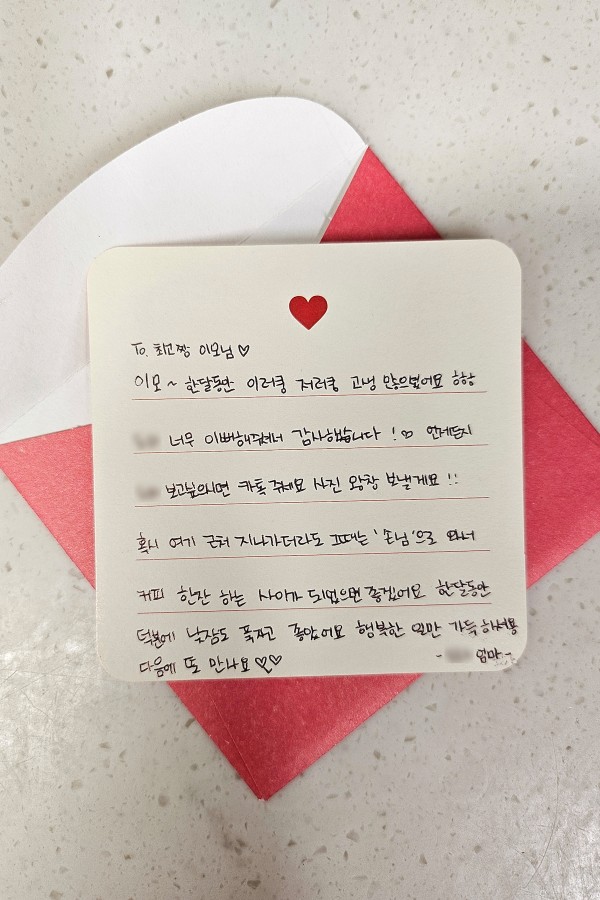 To. 최고짱 이모님♡
이모~ 한달동안 이러쿵 저러쿵 고생 많으셨어요 하핳
너무 이뻐해주셔서 감사했습니다 !♡ 언제든지
보고싶으시면 카톡 주세요 사진 왕창 보낼게요 !!
혹시 여기 근처 지나가더라도 그때는 '손님'으로 와서
커피 한잔 하는 사이가 되었으면 좋겠어요 한달동안
덕분에 낮잠도 푹자고 좋았어요 행복한 일만 가득하셔용
다음에 또 만나요 ♡♡
- 엄마 -